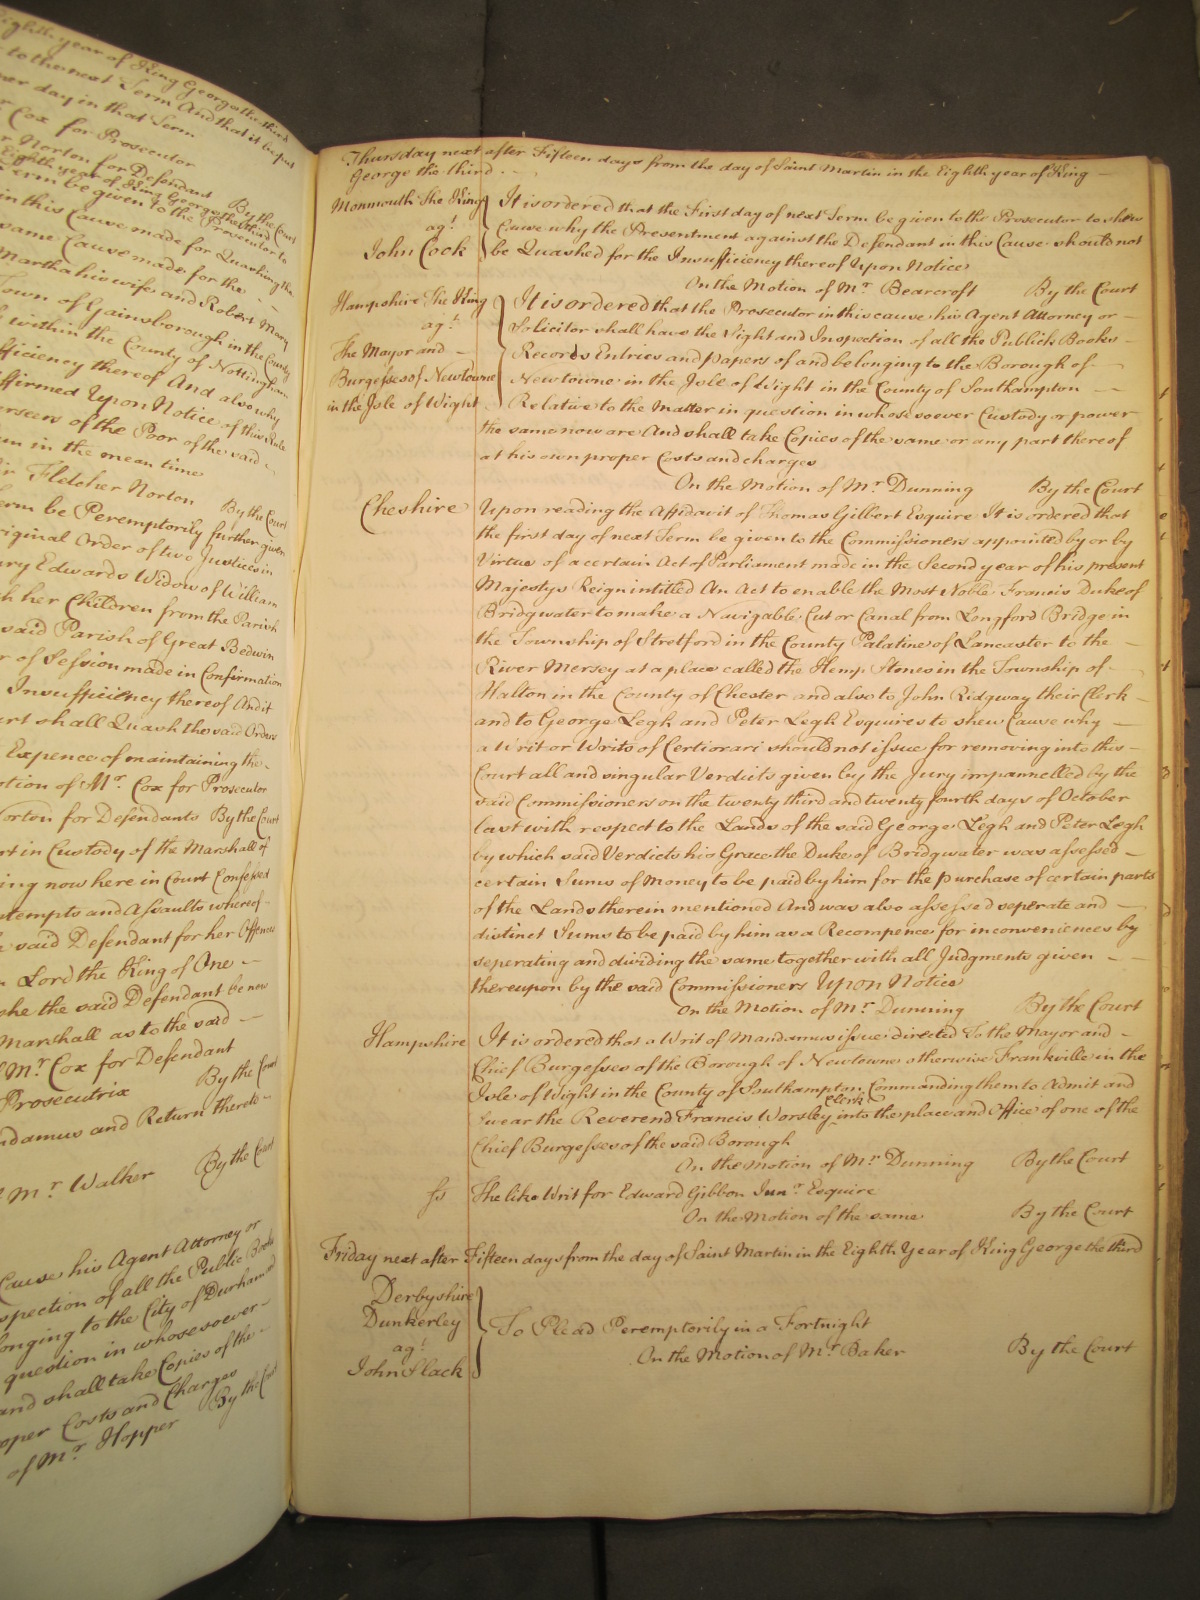 Eighth year of King George the third
to the next Term And that it be put
day in that Term
Cox for Prosecutor
Norton for Defendant By the Court
Eighth year of King George the third
Term be given to the Prosecutor to
in this Cause made for Quashing the
same Cause made for the
Martha his wife and Robert Mary
Town of Gainsborough in the County
within the County of Nottingham
fficiency thereof And also why
ffirmed Upon Notice of this Rule
erseers of the Poor of the said
in the mean time
Fletcher Norton By the Court
erm be Peremptorily further given
riginal Order of two Justices in
ary Edwards Widow of William
h her Children from the Parish
said Parish of Great Bedwin
r of Session made in Confirmation
Insufficiency thereof And it
urt shall Quash the said Orders
Expence of maintaining the
otion of Mr. Cox for Prosecutor
orton for Defendants By the Court
rt in Custody of the Marshall of
ing now here in Court Confessed
ntempts and Assaults whereof
said Defendant for her Offences
Lord the King of One
she the said Defendant be now
Marshall as to the said
Mr. Cox for Defendant
Prosecutrix By the Court
ndamus and Return thereto
Mr. Walker By the Court
Cause his Agent Attorney or
spection of all the Public Books
onging to the City of Durham and
question in whosesoever
and shall take Copies of the
oper Costs and Charges
of Mr. Hopper By the Court
Thursday next after Fifteen days from the day of Saint Martin in the Eighth year of King
George the third
Monmouth The King
agt.
John Cock
It is ordered that the First day of next Term be given to the Prosecutor to shew
Cause why the Presentment against the Defendant in this Cause should not
be Quashed for the Insufficiency thereof Upon Notice
On the Motion of Mr. Bearcroft By the Court
Hampshire The King
agt.
The Mayor and
Burgesses of Newtowne
in the Isle of Wight
It is ordered that the Prosecutor in this cause his Agent Attorney or
Solicitor shall have the Sight and Inspection of all the Publick Books
Records Entries and papers of and belonging to the Borough of
Newtowne in the Isle of Wight in the County of Southampton
Relative to the Matter in question in whosesoever Custody or power
the same now are And shall take Copies of the same or any part thereof
at his own proper Costs and charges
On the Motion of Mr. Dunning By the Court
Cheshire Upon reading the Affidavit of Thomas Gilbert Esquire It is ordered that
the first day of next Term be given to the Commissioners appointed by or by
Virtue of a certain Act of Parliament made in the Second year of his present
Majestys Reign intitled An Act to enable the Most Noble Francis Duke of
Bridgwater to make a Navigable Cut or Canal from Longford Bridge in
the Township of Stretford in the County Palatine of Lancaster to the
River Mersey at a place called the Hemp Stones in the Township of
Halton in the County of Chester and also to John Ridgway their Clerk
and to George Legh and Peter Legh Esquires to shew Cause why
a Writ or Writs of Certiorari should not issue for removing into this
Court all and singular Verdicts given by the Jury impannelled by the
said Commissioners on the twenty third and twenty fourth days of October
last with respect to the Lands of the said George Legh and Peter Legh
by which said Verdicts his Grace the Duke of Bridgwater was assessed
certain Sums of Money to be paid by him for the purchase of certain parts
of the Lands therein mentioned And was also assessed seperate and
distinct Sums to be paid by him as a Recompence for inconveniences by
seperating and dividing the same together with all Judgments given
thereupon by the said Commissioners Upon Notice
On the Motion of Mr. Dunning By the Court
Hampshire It is ordered that a Writ of Mandamus issue directed To the Mayor and
Chief Burgesses of the Borough of Newtowne otherwise Frankville in the
Isle of Wight in the County of Southampton Commanding them to Admit and
Clerk
Swear the Reverend Francis Worsley into the place and Office of one of the
Chief Burgesses of the said Borough
On the Motion of Mr. Dunning By the Court
ss The like Writ for Edward Gibbon Junr. Esquire
On the Motion of the same By the Court
Friday next after Fifteen days from the day of Saint Martin in the Eighth Year of King George the third
Derbyshire
Dunkerley
agt.
John Slack
To Plead Peremptorily in a Fortnight
On the Motion of Mr. Baker By the Court